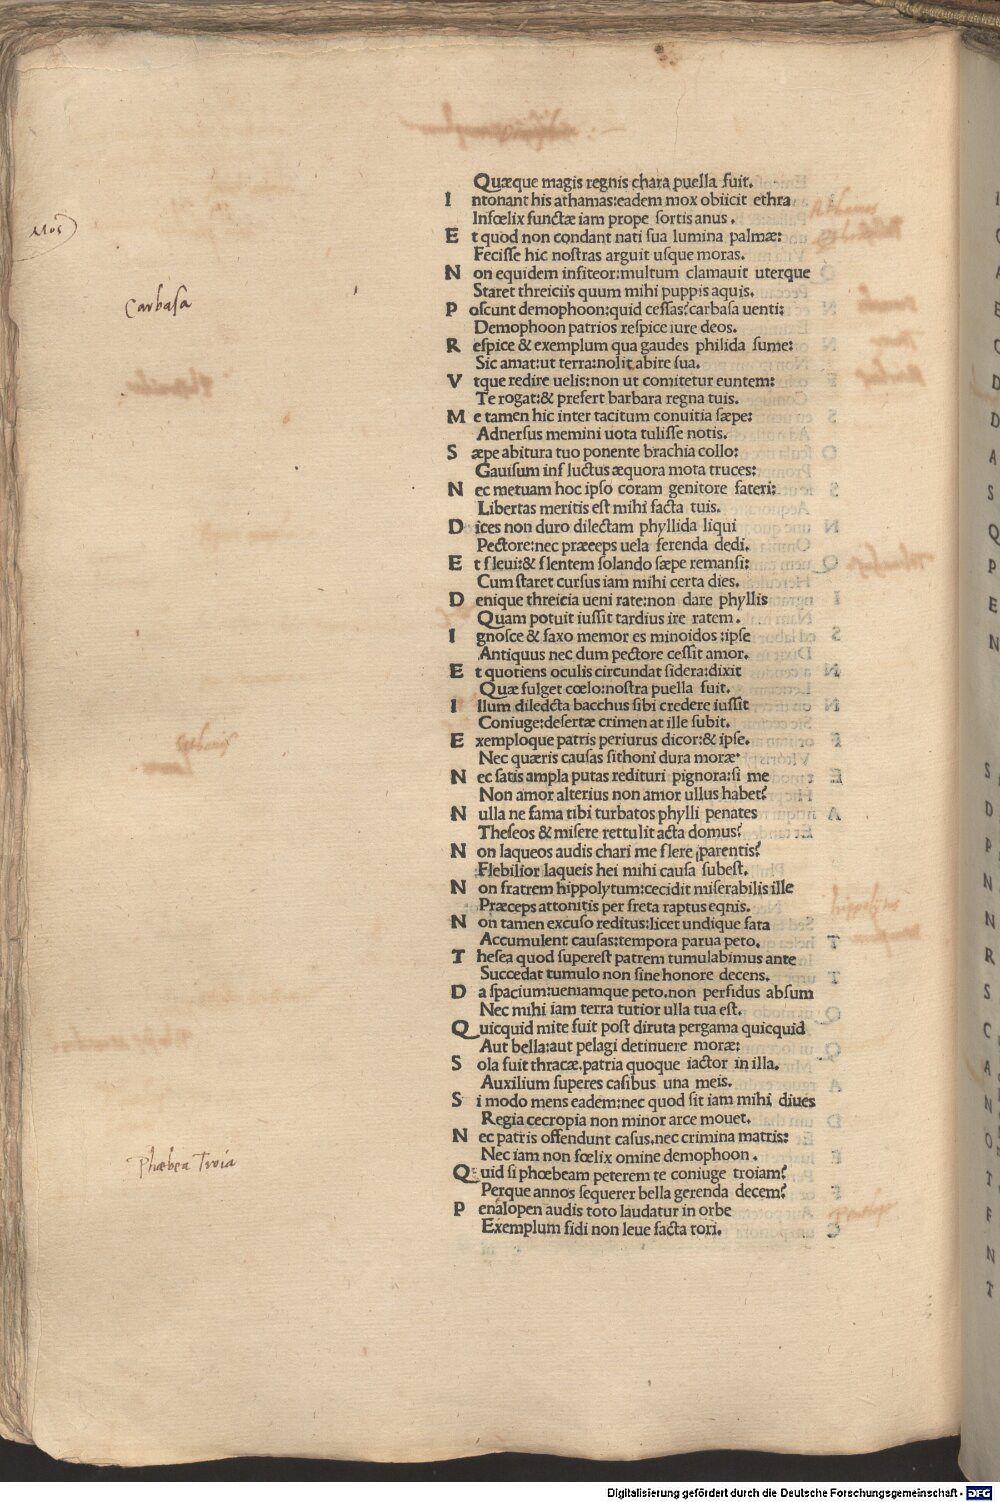 Quæque magis regnis chara puella fuit.
I ntonant his athamas:eadem mox obiicit ethra
Infœlix functæ iam prope sortis anus.
E t quod non condant nati sua lumina palmæ:
Fecisse hic nostras arguit usque moras.
Mos
N on equidem insiteor:multum clamauit uterque
Staret threiciis quum mihi puppis aquis.
Carbasa
P oscunt demophoon:quid cessas?carbasa uenti:
Demophoon patrios respice iure deos.
R espice & exemplum qua gaudes philida sume:
Sic amat:ut terra:nolit abire sua.
V tque redire uelis:non ut comitetur euntem:
Te rogat:& prefert barbara regna tuis.
M e tamen hic inter tacitum conuitia sæpe:
Adnersus memini uota tulisse notis.
S æpe abitura tuo ponente brachia collo:
Gauisum inf luctus æquora mota truces:
N ec metuam hoc ipso coram genitore fateri:
Libertas meritis est mihi facta tuis.
D ices non duro dilectam phyllida liqui
Pectore:nec præceps uela ferenda dedi.
E t fleui:& flentem solando sæpe remansi:
Cum staret cursus iam mihi certa dies.
D enique threicia ueni rate:non dare phyllis
Quam potuit iussit tardius ire ratem.
I gnosce & saxo memor es minoidos:ipse
Antiquus nec dum pectore cessit amor.
E t quotiens oculis circundat sidera:dixit
Quæ fulget cœlo:nostra puella fuit.
I llum diledcta bacchus sibi credere iussit
Coniuge:desertæ crimen at ille subit.
E xemploque patris periurus dicor:& ipse.
Nec quæris causas sithoni dura moræ·
N ec satis ampla putas redituri pignora:si me
Non amor alterius non amor ullus habet?
N ulla ne fama tibi turbatos phylli penates
Theseos & misere rettulit acta domus?
N on laqueos audis chari me flere parentis?
Flebilior laqueis hei mihi causa subest.
N on fratrem hippolytum:cecidit miserabilis ille
Præceps attonitis per freta raptus eqnis.
N on tamen excuso reditus:licet undique fata
Accumulent causas:tempora parua peto.
T hesea quod superest patrem tumulabimus ante
Succedat tumulo non sine honore decens.
D a spacium:ueniamque peto.non perfidus absum
Nec mihi iam terra tutior ulla tua est.
Q uicquid mite fuit post diruta pergama quicquid
Aut bella:aut pelagi detinuere moræ:
S ola fuit thracæ.patria quoque iactor in illa.
Auxilium superes casibus una meis.
S i modo mens eadem:nec quod sit iam mihi diues
Regia cecropia non minor arce mouet.
N ec patris offendunt casus.nec crimina matris:
Nec iam non fœlix omine demophoon.
Phæbea Troia
Q uid si phœbeam peterem te coniuge troiam?
Perque annos sequerer bella gerenda decem?
P enalopen audis toto laudatur in orbe
Exemplum fidi non leue facta tori.
Digitalisierung gefördert durch die Deutsche Forschungsgemeinschaft - DFG